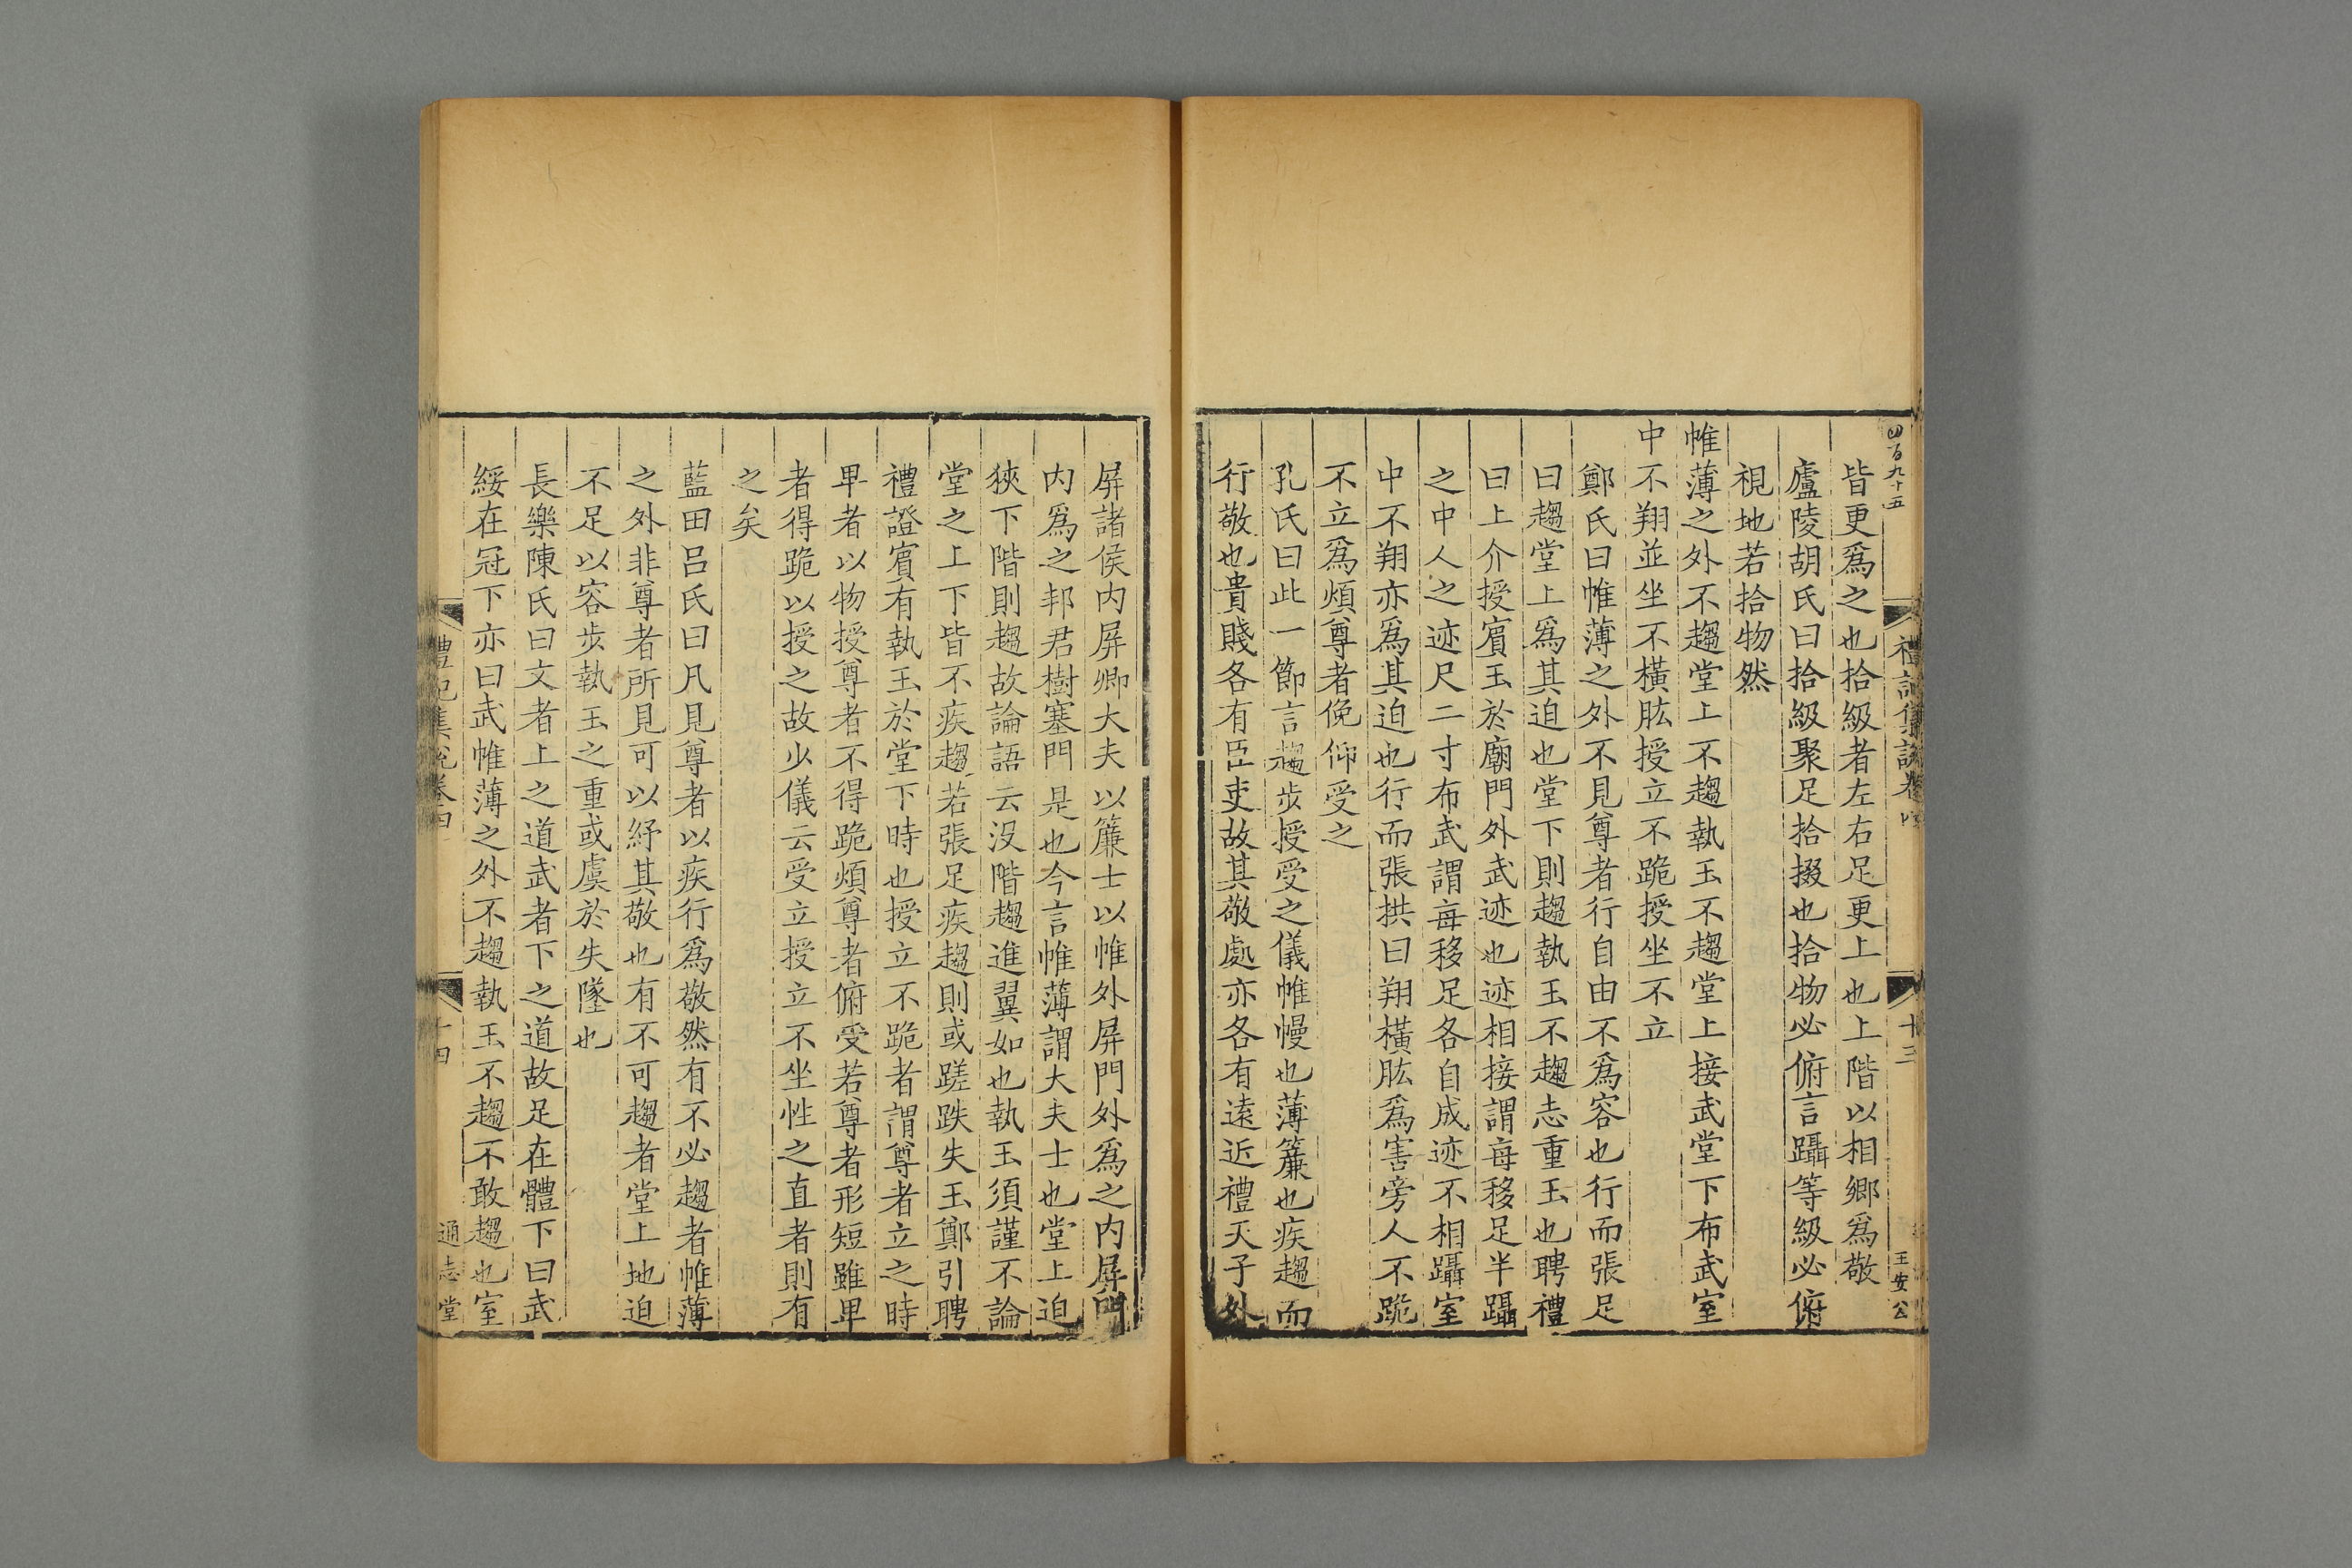 四百九十五
禮記集說卷四
十三
王安公
皆更爲之也拾級者左右足更上也上階以相鄉爲敬
廬陵胡氏曰拾級聚足拾掇也拾物必俯言躡等級必俯
視地若拾物然
帷薄之外不趨堂上不趨執玉不趨堂上接武堂下布武室
中不翔並坐不橫肱授立不跪授坐不立
鄭氏曰帷薄之外不見尊者行自由不爲容也行而張足
曰趨堂上爲其迫也堂下則趨執玉不趨志重玉也聘禮
曰上介授賔玉於廟門外武迹也迹相接謂每移足半躡
之中人之迹尺二寸布武謂每移足各自成迹不相躡室
中不翔亦爲其迫也行而張拱曰翔橫肱爲害旁人不跪
不立爲煩尊者俛仰受之
孔氏曰此一節言趨步授受之儀帷幔也薄簾也疾趨而
行敬也貴賤各有臣吏故其敬處亦各有遠近禮天子外
屏諸侯内屏卿大夫以簾士以帷外屏門外爲之内屏門
内爲之邦君樹塞門是也今言帷薄謂大夫士也堂上迫
狹下階則趨故論語云没階趨進翼如也執玉須謹不論
堂之上下皆不疾趨若張足疾趨則或蹉跌失玉鄭引聘
禮證賔有執玉於堂下時也授立不跪者謂尊者立之時
卑者以物授尊者不得跪煩尊者俯受若尊者形短雖卑
者得跪以授之故少儀云受立授立不坐性之直者則有
之矣
藍田呂氏曰凡見尊者以疾行爲敬然有不必趨者帷薄
之外非尊者所見可以紓其敬也有不可趨者堂上地迫
不足以容步執玉之重或虞於失墜也
長樂陳氏曰文者上之道武者下之道故足在體下曰武
綏在冠下亦曰武帷薄之外不趨執玉不趨不敢趨也室
禮記集說卷四
十四
通志堂